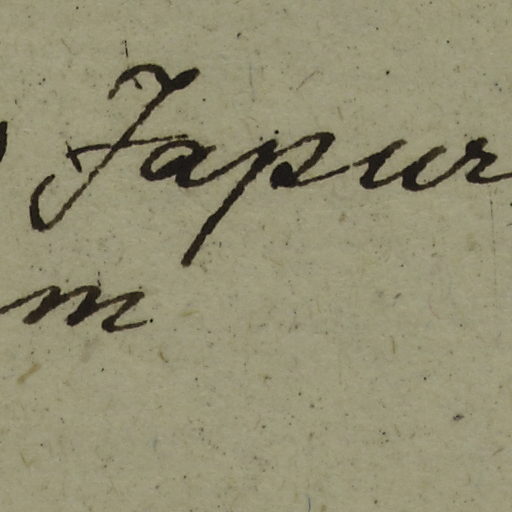 Japur
m